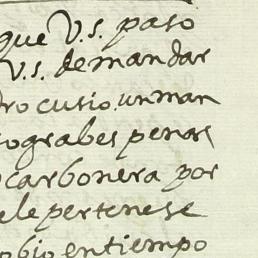 que V.S. paso
V.S. demandar
rocusio, unman
ograbes penas
carbonera por
ele pertenese
obio entiempo